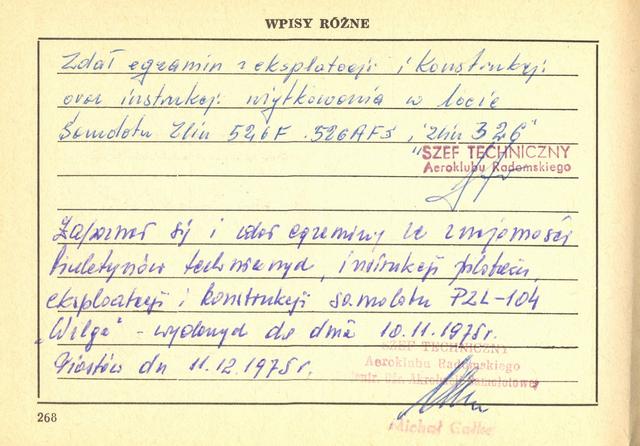 WPISY RÓŻNE
Zdał egzamin z eksploatacji i konstrukcji
oraz instrukcji użytkowania w locie
Samolotu Zlin 526F. 526AFS, "zlin 326"
"SZEF TECHNICZNY
Aeroklubu Radomskiego
Zapoznał się i zdał egzaminy ze znajomości
biuletynów technicznych, instrukcji pilotażu,
eksploatacji i konstrukcji samolotu PZL-104
„Wilga" - wydanych do dnia 10.11.1975r.
Piastów dn 11.12.1975r.
SZEF TECHNICZNY
Aeroklubu Radomskiego
Centr. Ośr. Akrobacji Samolotowej
Michał
268